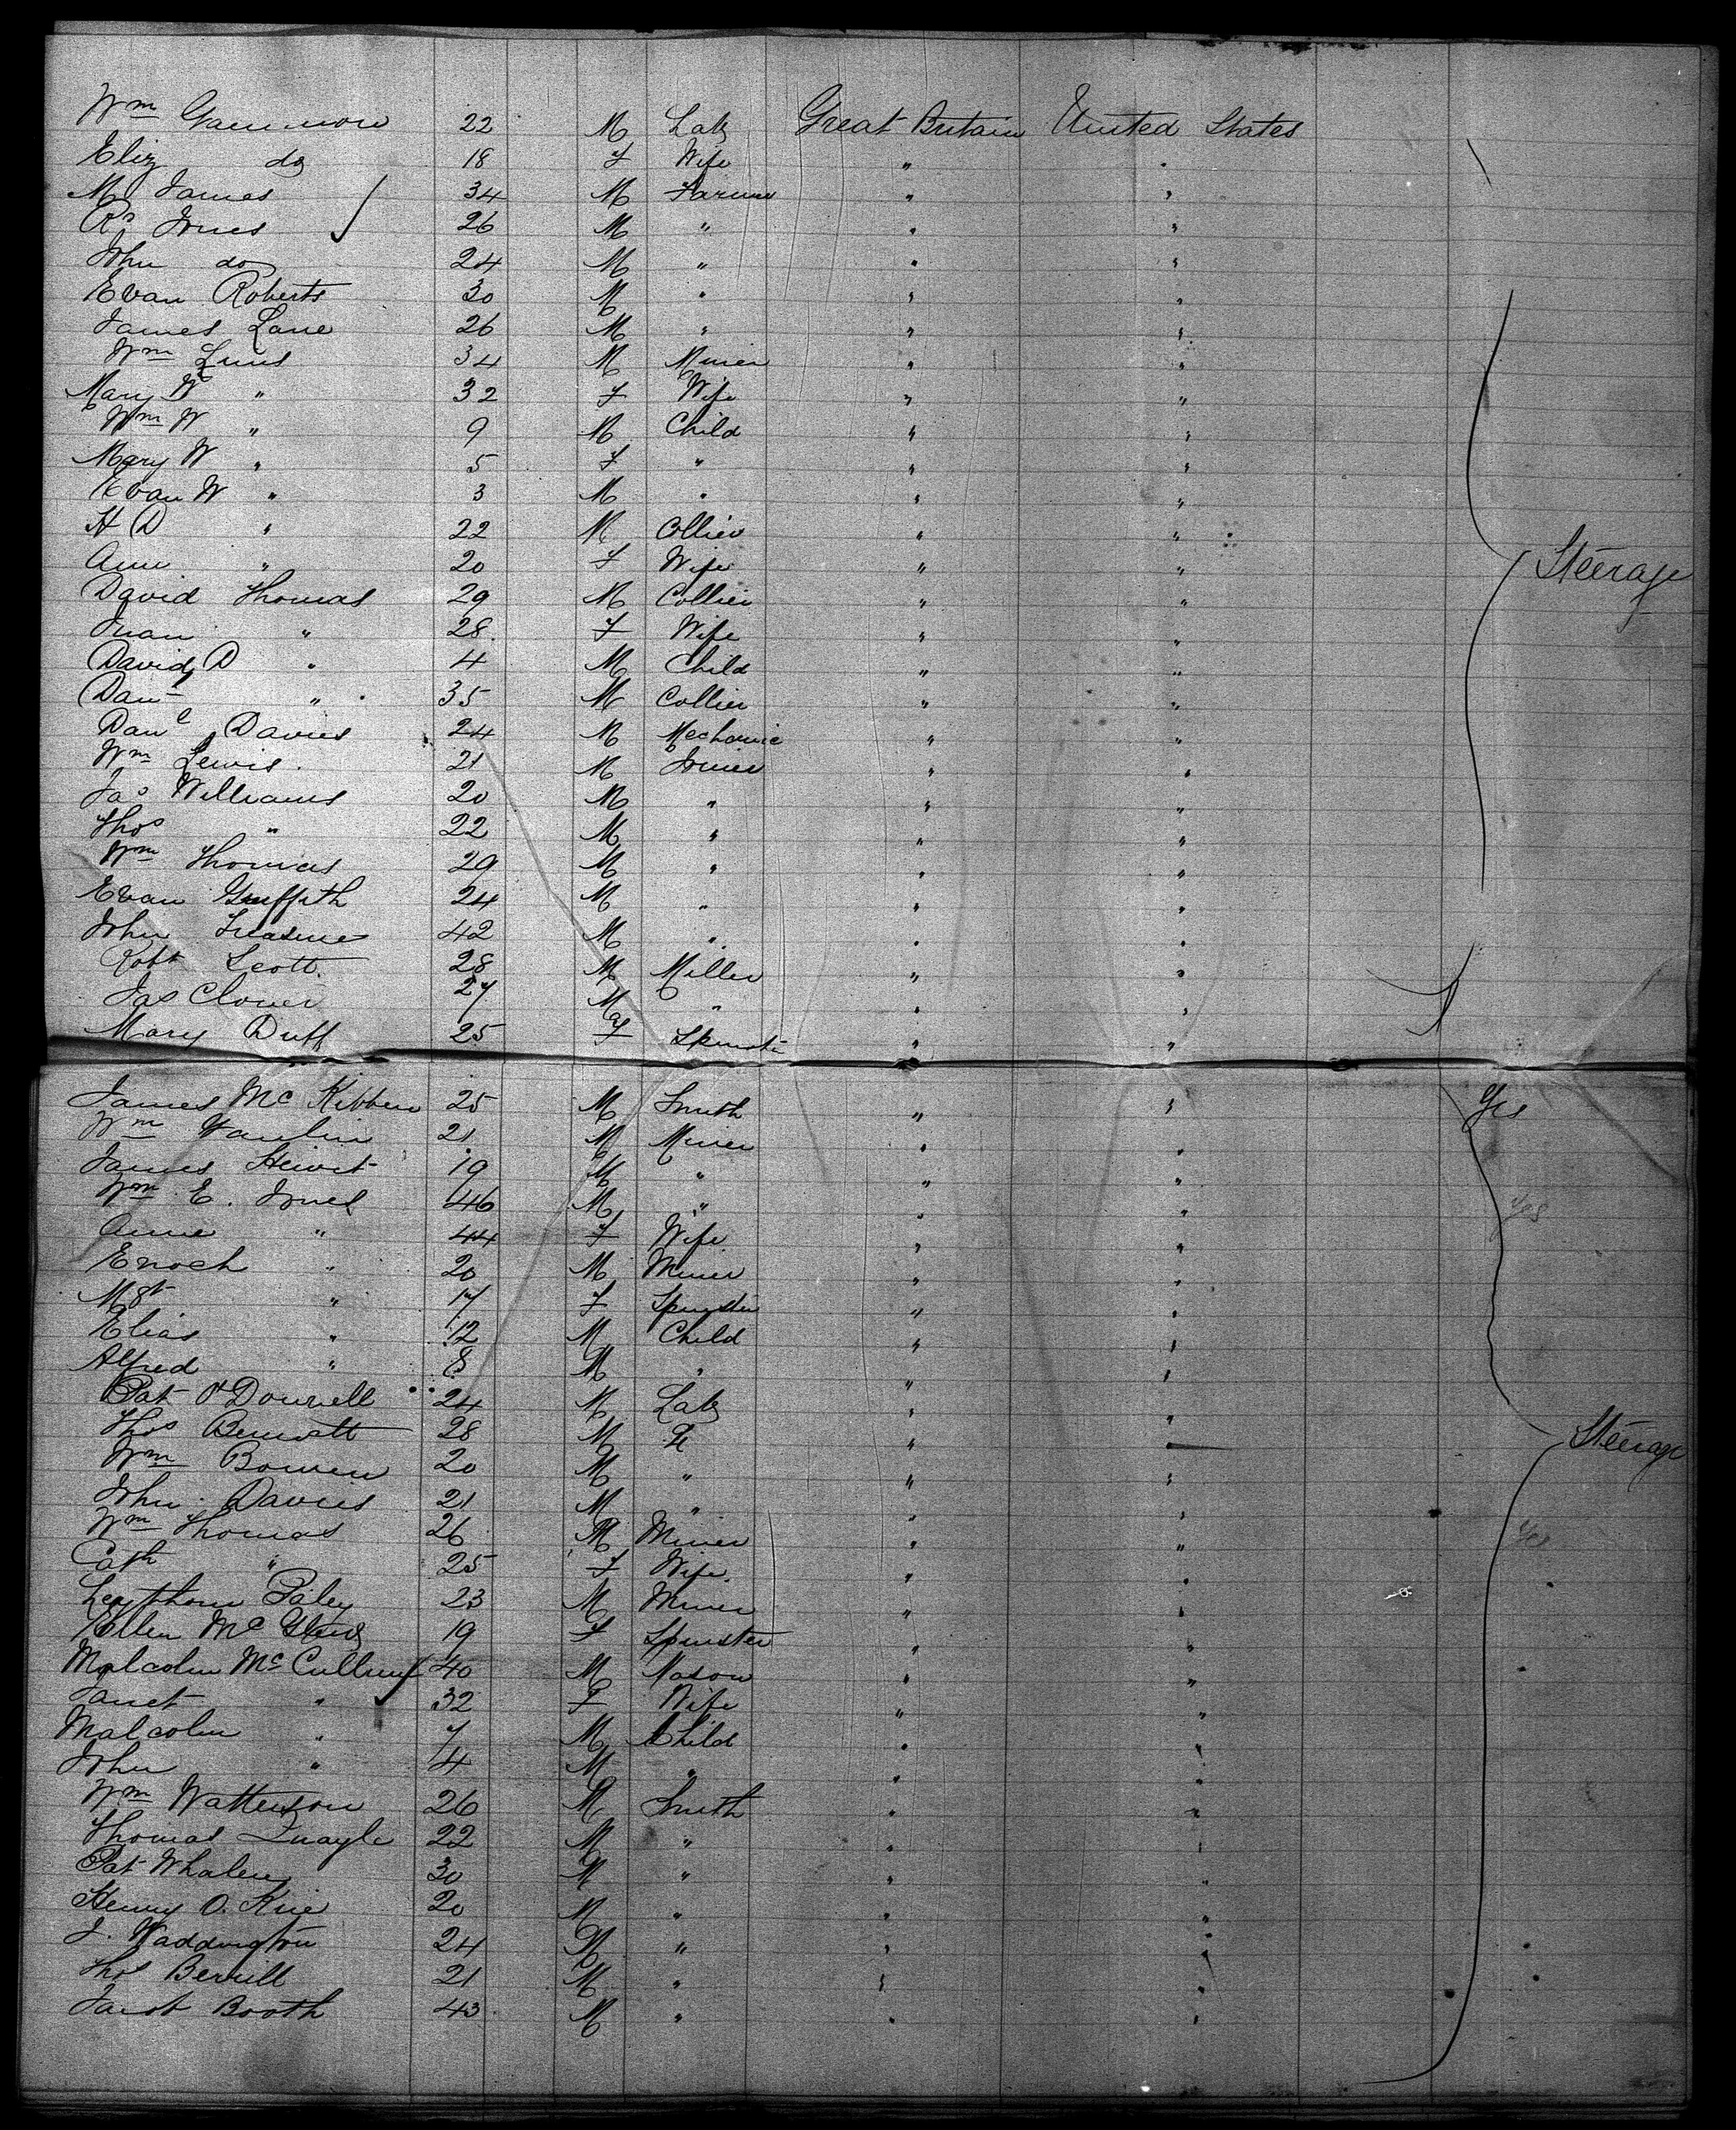 Wm Gammon 22 M Labr Great Britain United States
Eliz do 18 F Wife " "
M James 34 M Farmer " "
Rd Jones 26 M " " "
John do 24 M " " "
Evan Roberts 30 M " " "
James Lane 26 M " " "
Wm 34 M Miner " "
Mary W " 32 F Wife " "
Wm W " 9 M Child " "
Mary W " 5 F " " "
Evan W " 3 M " " "
H D " 22 M Collier " "
Ann " 20 F Wife " " Steerage
David Thomas 29 M Collier " "
" 28 F Wife " "
David D " 4 M Child " "
Dan " 35 M Collier " "
Danl Davies 24 M Mechanic " "
Wm Lewis 21 M " "
Jas Williams 20 M " " "
Thos " 22 M " " "
Wm Thomas 29 M " " "
Evan Griffith 24 M " " "
John 42 M " " "
Robt Scott 28 M Miller " "
Jas Clover 27 M " " "
Mary Duff 25 F Spinster " "
James McKibben 25 M Smith " " Yes
Wm 21 M Miner " "
James Hewit 19 M " " "
Wm E. Jones 46 M " " " Yes
Anne " 44 F Wife " "
Enoch " 20 M Miner " "
Mgt " 17 F Spinster " "
Elias " 12 M Child " "
Alfred " 8 M " " "
Pat O'Donnell 24 M Labr " "
Thos Bennett 28 M " " Steerage
Wm Bowen 20 M " " "
John Davies 21 M " " "
Wm Thomas 26 M Miner " " Yes
Cath " 25 F Wife " "
Paley 23 M Miner " "
Ellen Mc 19 F Spinster " "
Malcolm McCullum 40 M Mason " "
Janet " 32 F Wife " "
Malcolm " 7 M Child " "
John " 4 M " " "
Wm Watterson 26 M Smith " "
Thomas Quayle 22 M " " "
Pat Whalen 30 M " " "
Henry O. 20 M " " "
J. Waddington 24 M " " "
Thos Berrill 21 M " " "
Jacob Booth 43 M " " "